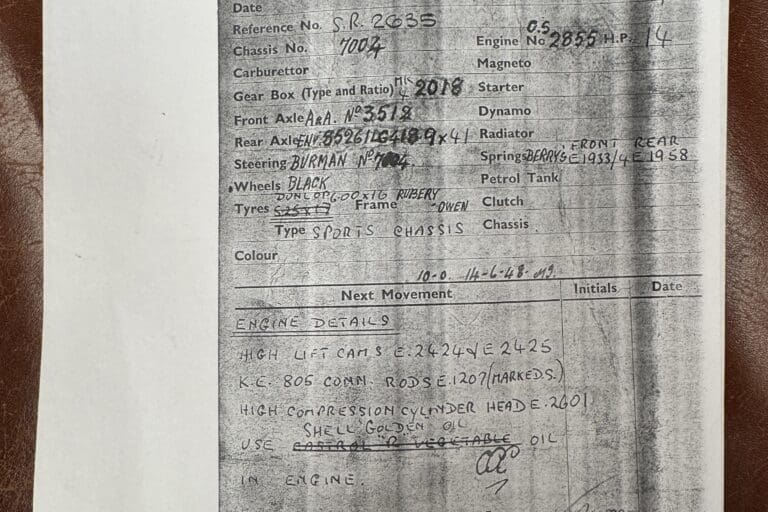 Date
Reference No. S.R. 2635
Chassis No. 7004 Engine No O.S. 2855 H.P. 14
Carburettor Magneto
Gear Box (Type and Ratio) MK 4 2018 Starter
Front Axle A&A. No 3512 Dynamo
Rear Axle ENV. 85261 LG418 9x41 Radiator
Steering BURMAN No 7004 Springs BERRY'S FRONT E1933/4 REAR E1958
Wheels BLACK Petrol Tank
Tyres 525x17 DUNLOP 600x16 Frame RUBERY OWEN Clutch
Type SPORTS CHASSIS Chassis
Colour
10-0. 14-6-48.
Next Movement Initials Date
ENGINE DETAILS
HIGH LIFT CAMS E.2424 & E 2425
K.E. 805 CONN. RODS E.1207 (MARKED S.)
HIGH COMPRESSION CYLINDER HEAD E.2601
SHELL GOLDEN OIL
USE CASTROL "R" VEGETABLE OIL
IN ENGINE.